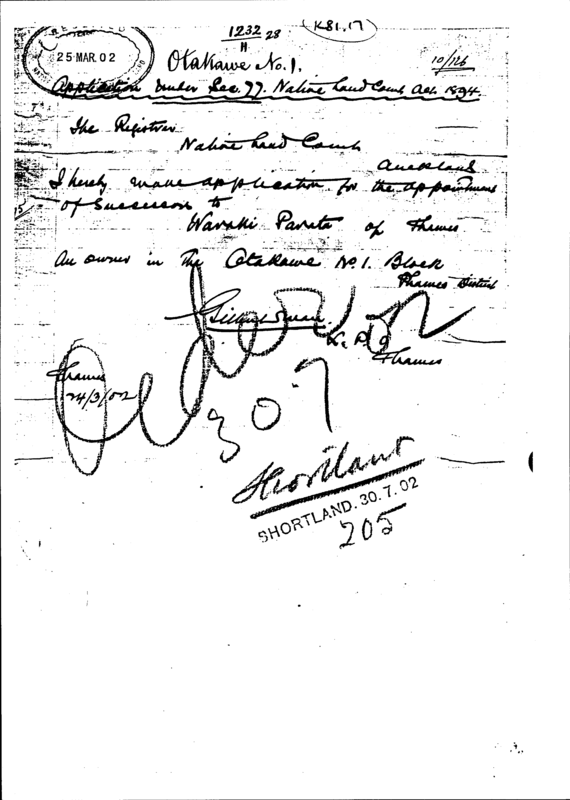 1232 28
H
K81.17
25 MAR. 02
Otakawe No. 1.
10/126
Application under Sec. 77. Native Land Court Act. 1894.
The Registrar
Native Land Court
Auckland
I hereby make application for the appointment
of Successor to
Waraki Parata of Thames
An owner in the Otakawe No. 1. Block
Thames District
Thames
Thames
24/3/02
30 7
Shortland
SHORTLAND. 30. 7. 02
205